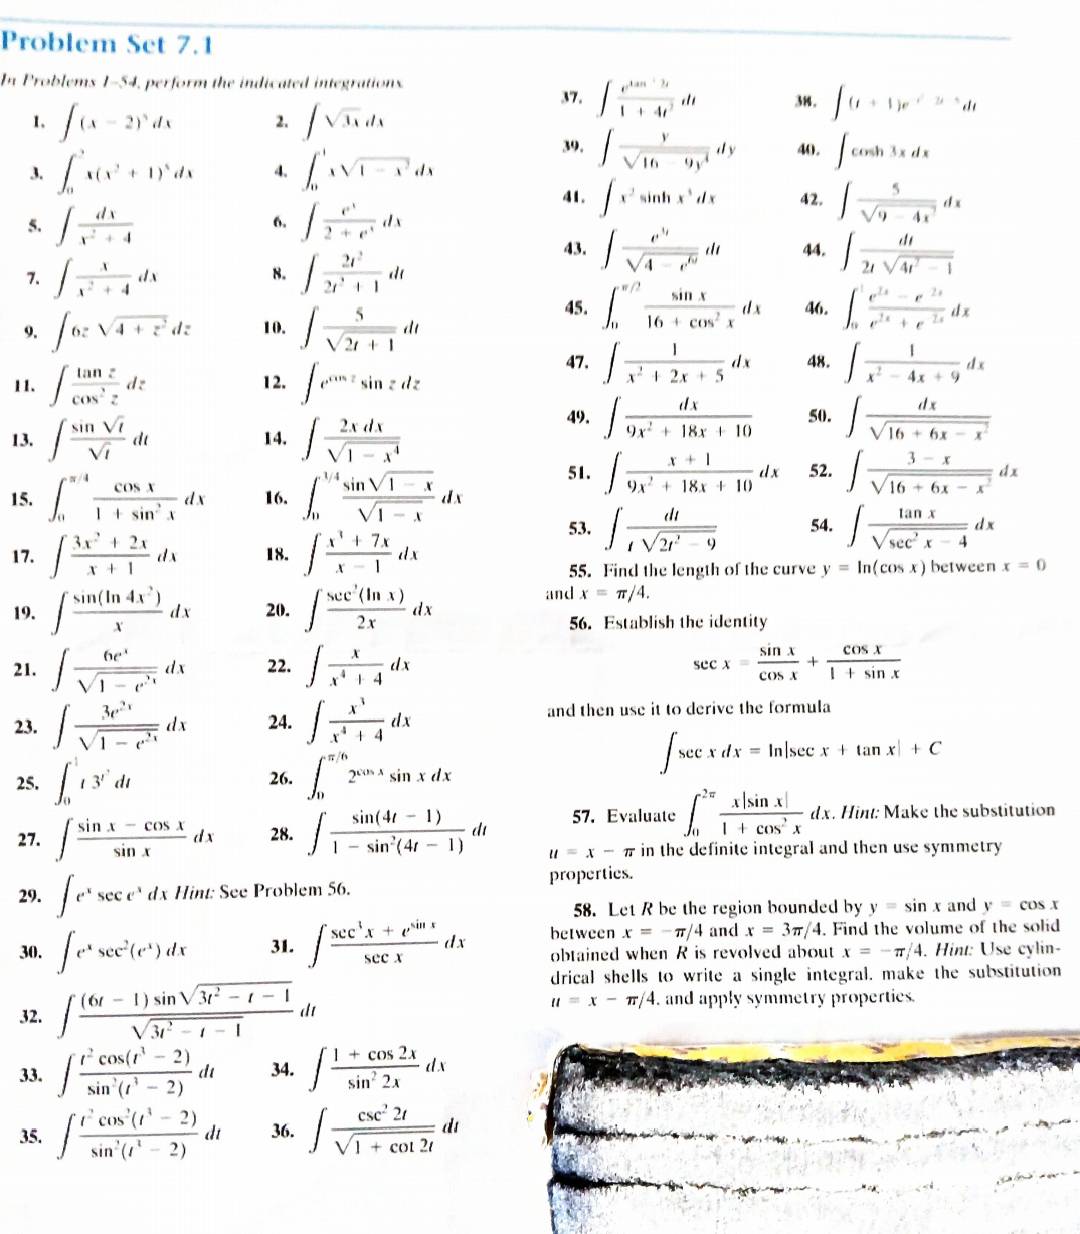 Problem Set 7.1
In Problems 1–54, perform the indicated integrations.
1. ∫ (x − 2)⁵ dx
2. ∫ √3x dx
3. ∫₀² x(x² + 1)⁵ dx
4. ∫₀¹ x√(1 − x²) dx
5. ∫ dx/(x² + 4)
6. ∫ eˣ/(2 + eˣ) dx
7. ∫ x/(x² + 4) dx
8. ∫ 2t²/(2t² + 1) dt
9. ∫ 6z √(4 + z²) dz
10. ∫ 5/√(2t + 1) dt
11. ∫ tan z/cos² z dz
12. ∫ e^(cos z) sin z dz
13. ∫ sin √t/√t dt
14. ∫ 2x dx/√(1 − x⁴)
15. ∫₀^(π/4) cos x/(1 + sin² x) dx
16. ∫₀^(3/4) sin √(1 − x)/√(1 − x) dx
17. ∫ (3x² + 2x)/(x + 1) dx
18. ∫ (x³ + 7x)/(x − 1) dx
19. ∫ sin(ln 4x²)/x dx
20. ∫ sec²(ln x)/2x dx
21. ∫ 6eˣ/√(1 − e²ˣ) dx
22. ∫ x/(x⁴ + 4) dx
23. ∫ 3e²ˣ/√(1 − e²ˣ) dx
24. ∫ x³/(x⁴ + 4) dx
25. ∫₀¹ t 3^(t²) dt
26. ∫₀^(π/6) 2^(cos x) sin x dx
27. ∫ (sin x − cos x)/sin x dx
28. ∫ sin(4t − 1)/(1 − sin²(4t − 1)) dt
29. ∫ eˣ sec eˣ dx Hint: See Problem 56.
30. ∫ eˣ sec²(eˣ) dx
31. ∫ (sec³x + e^(sin x))/sec x dx
32. ∫ (6t − 1) sin √(3t² − t − 1)/√(3t² − t − 1) dt
33. ∫ t² cos(t³ − 2)/sin²(t³ − 2) dt
34. ∫ (1 + cos 2x)/sin² 2x dx
35. ∫ t² cos²(t³ − 2)/sin²(t³ − 2) dt
36. ∫ csc² 2t/√(1 + cot 2t) dt
37. ∫ e^(tan⁻¹ 2t)/(1 + 4t²) dt
38. ∫ (t + 1)e^(−t² − 2t − 5) dt
39. ∫ y/√(16 − 9y⁴) dy
40. ∫ cosh 3x dx
41. ∫ x² sinh x³ dx
42. ∫ 5/√(9 − 4x²) dx
43. ∫ e³ᵗ/√(4 − e⁶ᵗ) dt
44. ∫ dt/(2t √(4t² − 1))
45. ∫₀^(π/2) sin x/(16 + cos² x) dx
46. ∫₀¹ (e²ˣ − e⁻²ˣ)/(e²ˣ + e⁻²ˣ) dx
47. ∫ 1/(x² + 2x + 5) dx
48. ∫ 1/(x² − 4x + 9) dx
49. ∫ dx/(9x² + 18x + 10)
50. ∫ dx/√(16 + 6x − x²)
51. ∫ (x + 1)/(9x² + 18x + 10) dx
52. ∫ (3 − x)/√(16 + 6x − x²) dx
53. ∫ dt/(t √(2t² − 9))
54. ∫ tan x/√(sec² x − 4) dx
55. Find the length of the curve y = ln(cos x) between x = 0
and x = π/4.
56. Establish the identity
sec x = sin x/cos x + cos x/(1 + sin x)
and then use it to derive the formula
∫ sec x dx = ln|sec x + tan x| + C
57. Evaluate ∫₀^(2π) x|sin x|/(1 + cos² x) dx. Hint: Make the substitution
u = x − π in the definite integral and then use symmetry
properties.
58. Let R be the region bounded by y = sin x and y = cos x
between x = −π/4 and x = 3π/4. Find the volume of the solid
obtained when R is revolved about x = −π/4. Hint: Use cylin-
drical shells to write a single integral, make the substitution
u = x − π/4, and apply symmetry properties.